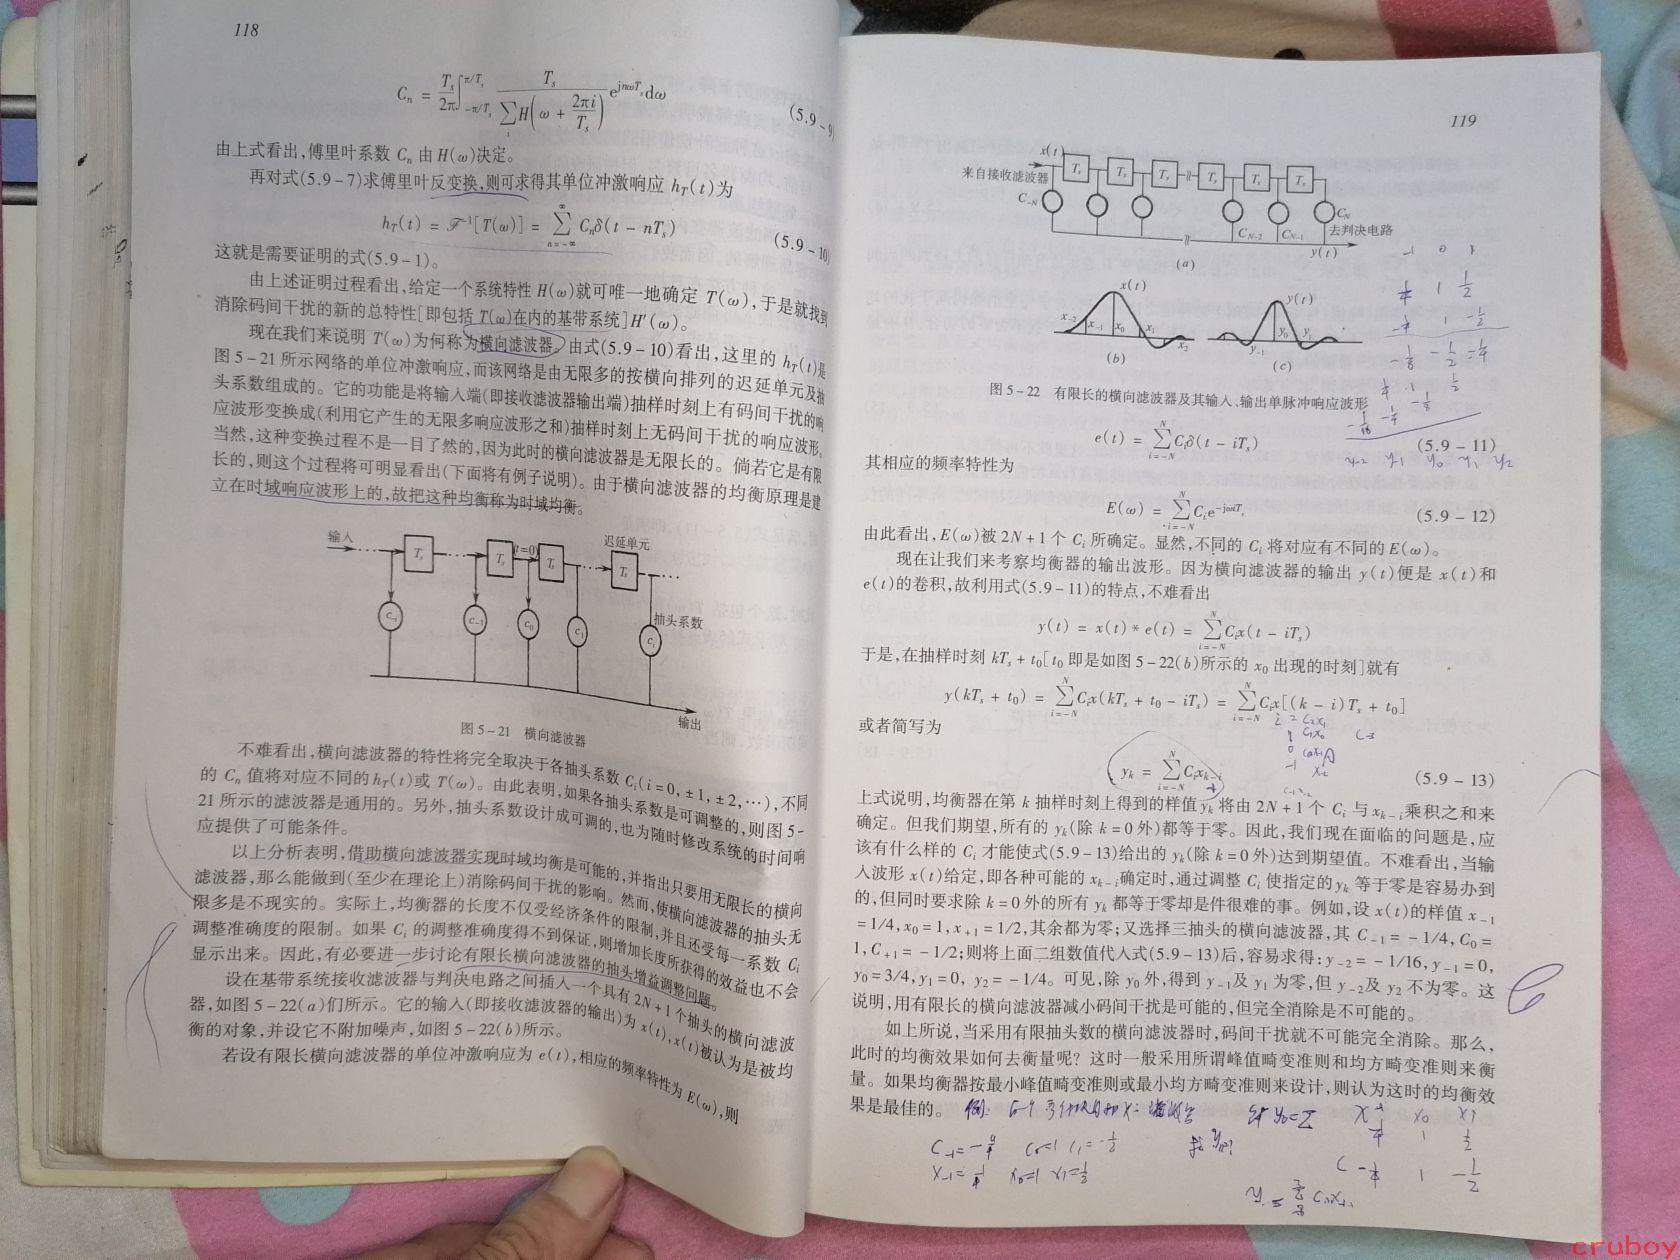 118
C_n = T_s/2π ∫_{-π/T_s}^{π/T_s} T_s / ∑_i H(ω + 2πi/T_s) e^{jnωT_s} dω (5.9-9)
由上式看出,傅里叶系数 C_n 由 H(ω)决定。
再对式(5.9-7)求傅里叶反变换,则可求得其单位冲激响应 h_T(t)为
h_T(t) = ℱ^{-1}[T(ω)] = ∑_{n=-∞}^{∞} C_nδ(t - nT_s) (5.9-10)
这就是需要证明的式(5.9-1)。
由上述证明过程看出,给定一个系统特性 H(ω)就可唯一地确定 T(ω),于是就找到
消除码间干扰的新的总特性[即包括 T(ω)在内的基带系统]H′(ω)。
现在我们来说明 T(ω)为何称为横向滤波器。由式(5.9-10)看出,这里的 h_T(t)是
图 5-21 所示网络的单位冲激响应,而该网络是由无限多的按横向排列的迟延单元及抽
头系数组成的。它的功能是将输入端(即接收滤波器输出端)抽样时刻上有码间干扰的响
应波形变换成(利用它产生的无限多响应波形之和)抽样时刻上无码间干扰的响应波形。
当然,这种变换过程不是一目了然的,因为此时的横向滤波器是无限长的。倘若它是有限
长的,则这个过程将可明显看出(下面将有例子说明)。由于横向滤波器的均衡原理是建
立在时域响应波形上的,故把这种均衡称为时域均衡。
输入 T_s T_s (t=0) T_s 迟延单元 T_s
c_{-i} c_{-1} c_0 c_1 c_i 抽头系数
输出
图 5-21 横向滤波器
不难看出,横向滤波器的特性将完全取决于各抽头系数 C_i(i=0,±1,±2,…),不同
的 C_n 值将对应不同的h_T(t)或 T(ω)。由此表明,如果各抽头系数是可调整的,则图 5-
21 所示的滤波器是通用的。另外,抽头系数设计成可调的,也为随时修改系统的时间响
应提供了可能条件。
以上分析表明,借助横向滤波器实现时域均衡是可能的,并指出只要用无限长的横向
滤波器,那么能做到(至少在理论上)消除码间干扰的影响。然而,使横向滤波器的抽头无
限多是不现实的。实际上,均衡器的长度不仅受经济条件的限制,并且还受每一系数 C_i
调整准确度的限制。如果 C_i 的调整准确度得不到保证,则增加长度所获得的效益也不会
显示出来。因此,有必要进一步讨论有限长横向滤波器的抽头增益调整问题。
设在基带系统接收滤波器与判决电路之间插入一个具有 2N+1 个抽头的横向滤波
器,如图 5-22(a)们所示。它的输入(即接收滤波器的输出)为 x(t),x(t)被认为是被均
衡的对象,并设它不附加噪声,如图 5-22(b)所示。
若设有限长横向滤波器的单位冲激响应为 e(t),相应的频率特性为 E(ω),则
119
x(t)
来自接收滤波器 T_s T_s T_s T_s T_s T_s
C_{-N} C_{N-2} C_{N-1} C_N
去判决电路
y(t)
(a)
x(t) y(t)
x_{-2} x_{-1} x_0 x_1 x_2 y_{-1} y_0 y_1
(b) (c)
图 5-22 有限长的横向滤波器及其输入、输出单脉冲响应波形
-1 0 1
1/4 1 1/2
-1/4 1 -1/2
-1/8 -1/2 -1/4
1/4 1 1/2
-1/16 -1/4 -1/8
y_{-2} y_{-1} y_0 y_1 y_2
e(t) = ∑_{i=-N}^{N} C_iδ(t - iT_s) (5.9-11)
其相应的频率特性为
E(ω) = ∑_{i=-N}^{N} C_i e^{-jωiT_s} (5.9-12)
由此看出,E(ω)被 2N+1 个 C_i 所确定。显然,不同的 C_i 将对应有不同的 E(ω)。
现在让我们来考察均衡器的输出波形。因为横向滤波器的输出 y(t)便是 x(t)和
e(t)的卷积,故利用式(5.9-11)的特点,不难看出
y(t) = x(t) * e(t) = ∑_{i=-N}^{N} C_i x(t - iT_s)
于是,在抽样时刻 kT_s + t_0[t_0 即是如图 5-22(b)所示的 x_0 出现的时刻]就有
y(kT_s + t_0) = ∑_{i=-N}^{N} C_i x(kT_s + t_0 - iT_s) = ∑_{i=-N}^{N} C_i x[(k - i)T_s + t_0]
或者简写为
y_k = ∑_{i=-N}^{N} C_i x_{k-i} (5.9-13)
上式说明,均衡器在第 k 抽样时刻上得到的样值 y_k 将由 2N+1 个 C_i 与 x_{k-i}乘积之和来
确定。但我们期望,所有的 y_k(除 k=0 外)都等于零。因此,我们现在面临的问题是,应
该有什么样的 C_i 才能使式(5.9-13)给出的 y_k(除 k=0 外)达到期望值。不难看出,当输
入波形 x(t)给定,即各种可能的 x_{k-i}确定时,通过调整 C_i 使指定的 y_k 等于零是容易办到
的,但同时要求除 k=0 外的所有 y_k 都等于零却是件很难的事。例如,设 x(t)的样值 x_{-1}
=1/4,x_0=1,x_{+1}=1/2,其余都为零;又选择三抽头的横向滤波器,其 C_{-1}=-1/4,C_0=
1,C_{+1}=-1/2;则将上面二组数值代入式(5.9-13)后,容易求得:y_{-2}=-1/16,y_{-1}=0,
y_0=3/4,y_1=0, y_2=-1/4。可见,除 y_0 外,得到 y_{-1}及 y_1 为零,但 y_{-2}及 y_2 不为零。这
说明,用有限长的横向滤波器减小码间干扰是可能的,但完全消除是不可能的。
如上所说,当采用有限抽头数的横向滤波器时,码间干扰就不可能完全消除。那么,
此时的均衡效果如何去衡量呢?这时一般采用所谓峰值畸变准则和均方畸变准则来衡
量。如果均衡器按最小峰值畸变准则或最小均方畸变准则来设计,则认为这时的均衡效
果是最佳的。
x_{-1} x_0 x_1
1/4 1 1/2
C_{-1}=-1/4 C_0=1 C_1=-1/2
x_{-1}=1/4 x_0=1 x_1=1/2
C -1/4 1 -1/2
cruboy